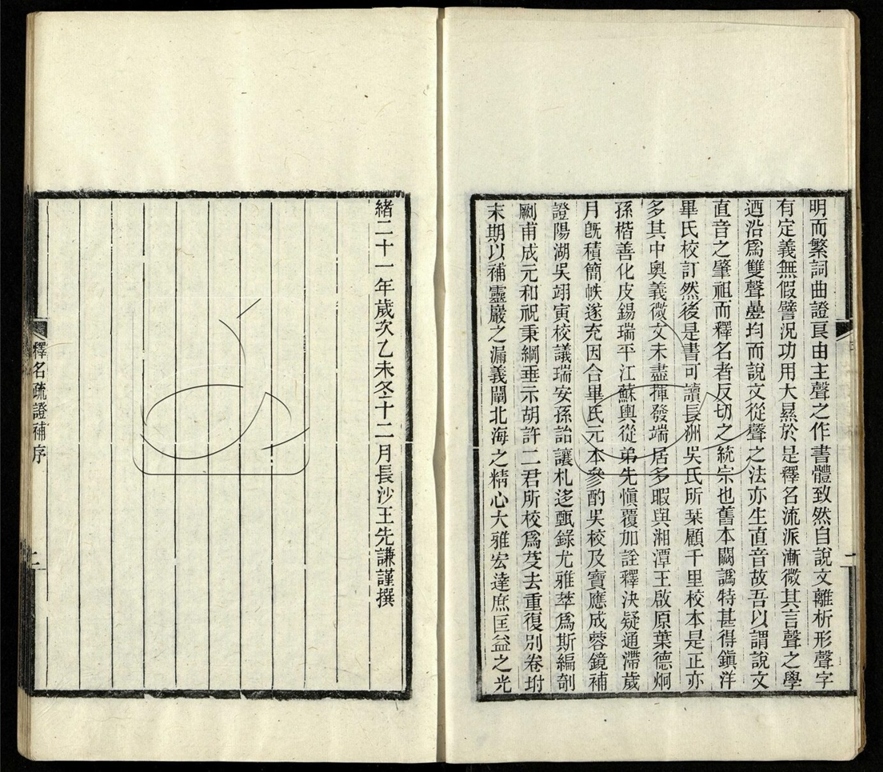 明而繁詞曲證良由主聲之作書體致然自說文離析形聲字
有定義無假譬況功用大㬎於是釋名流派漸微其言聲之學
迺沿爲雙聲疊均而說文從聲之法亦生直音故吾以謂說文
直音之肇祖而釋名者反切之統宗也舊本闕譌特甚得鎭洋
畢氏校訂然後是書可讀長洲吳氏所栞顧千里校本是正亦
多其中奧義微文未盡揮發端居多暇與湘潭王啟原葉德炯
孫楷善化皮錫瑞平江蘇輿從弟先愼覆加詮釋決疑通滯歲
月旣積簡帙遂充因合畢氏元本參酌吳校及寶應成蓉鏡補
證陽湖吳翊寅校議瑞安孫詒讓札迻甄錄尤雅萃爲斯編剞
劂甫成元和祝秉綱垂示胡許二君所校爲芟去重復別卷坿
末期以補靈巖之漏義闡北海之精心大雅宏達庶匡益之光
二
緖二十一年歲次乙未冬十二月長沙王先謙謹撰
釋名疏證補序
二